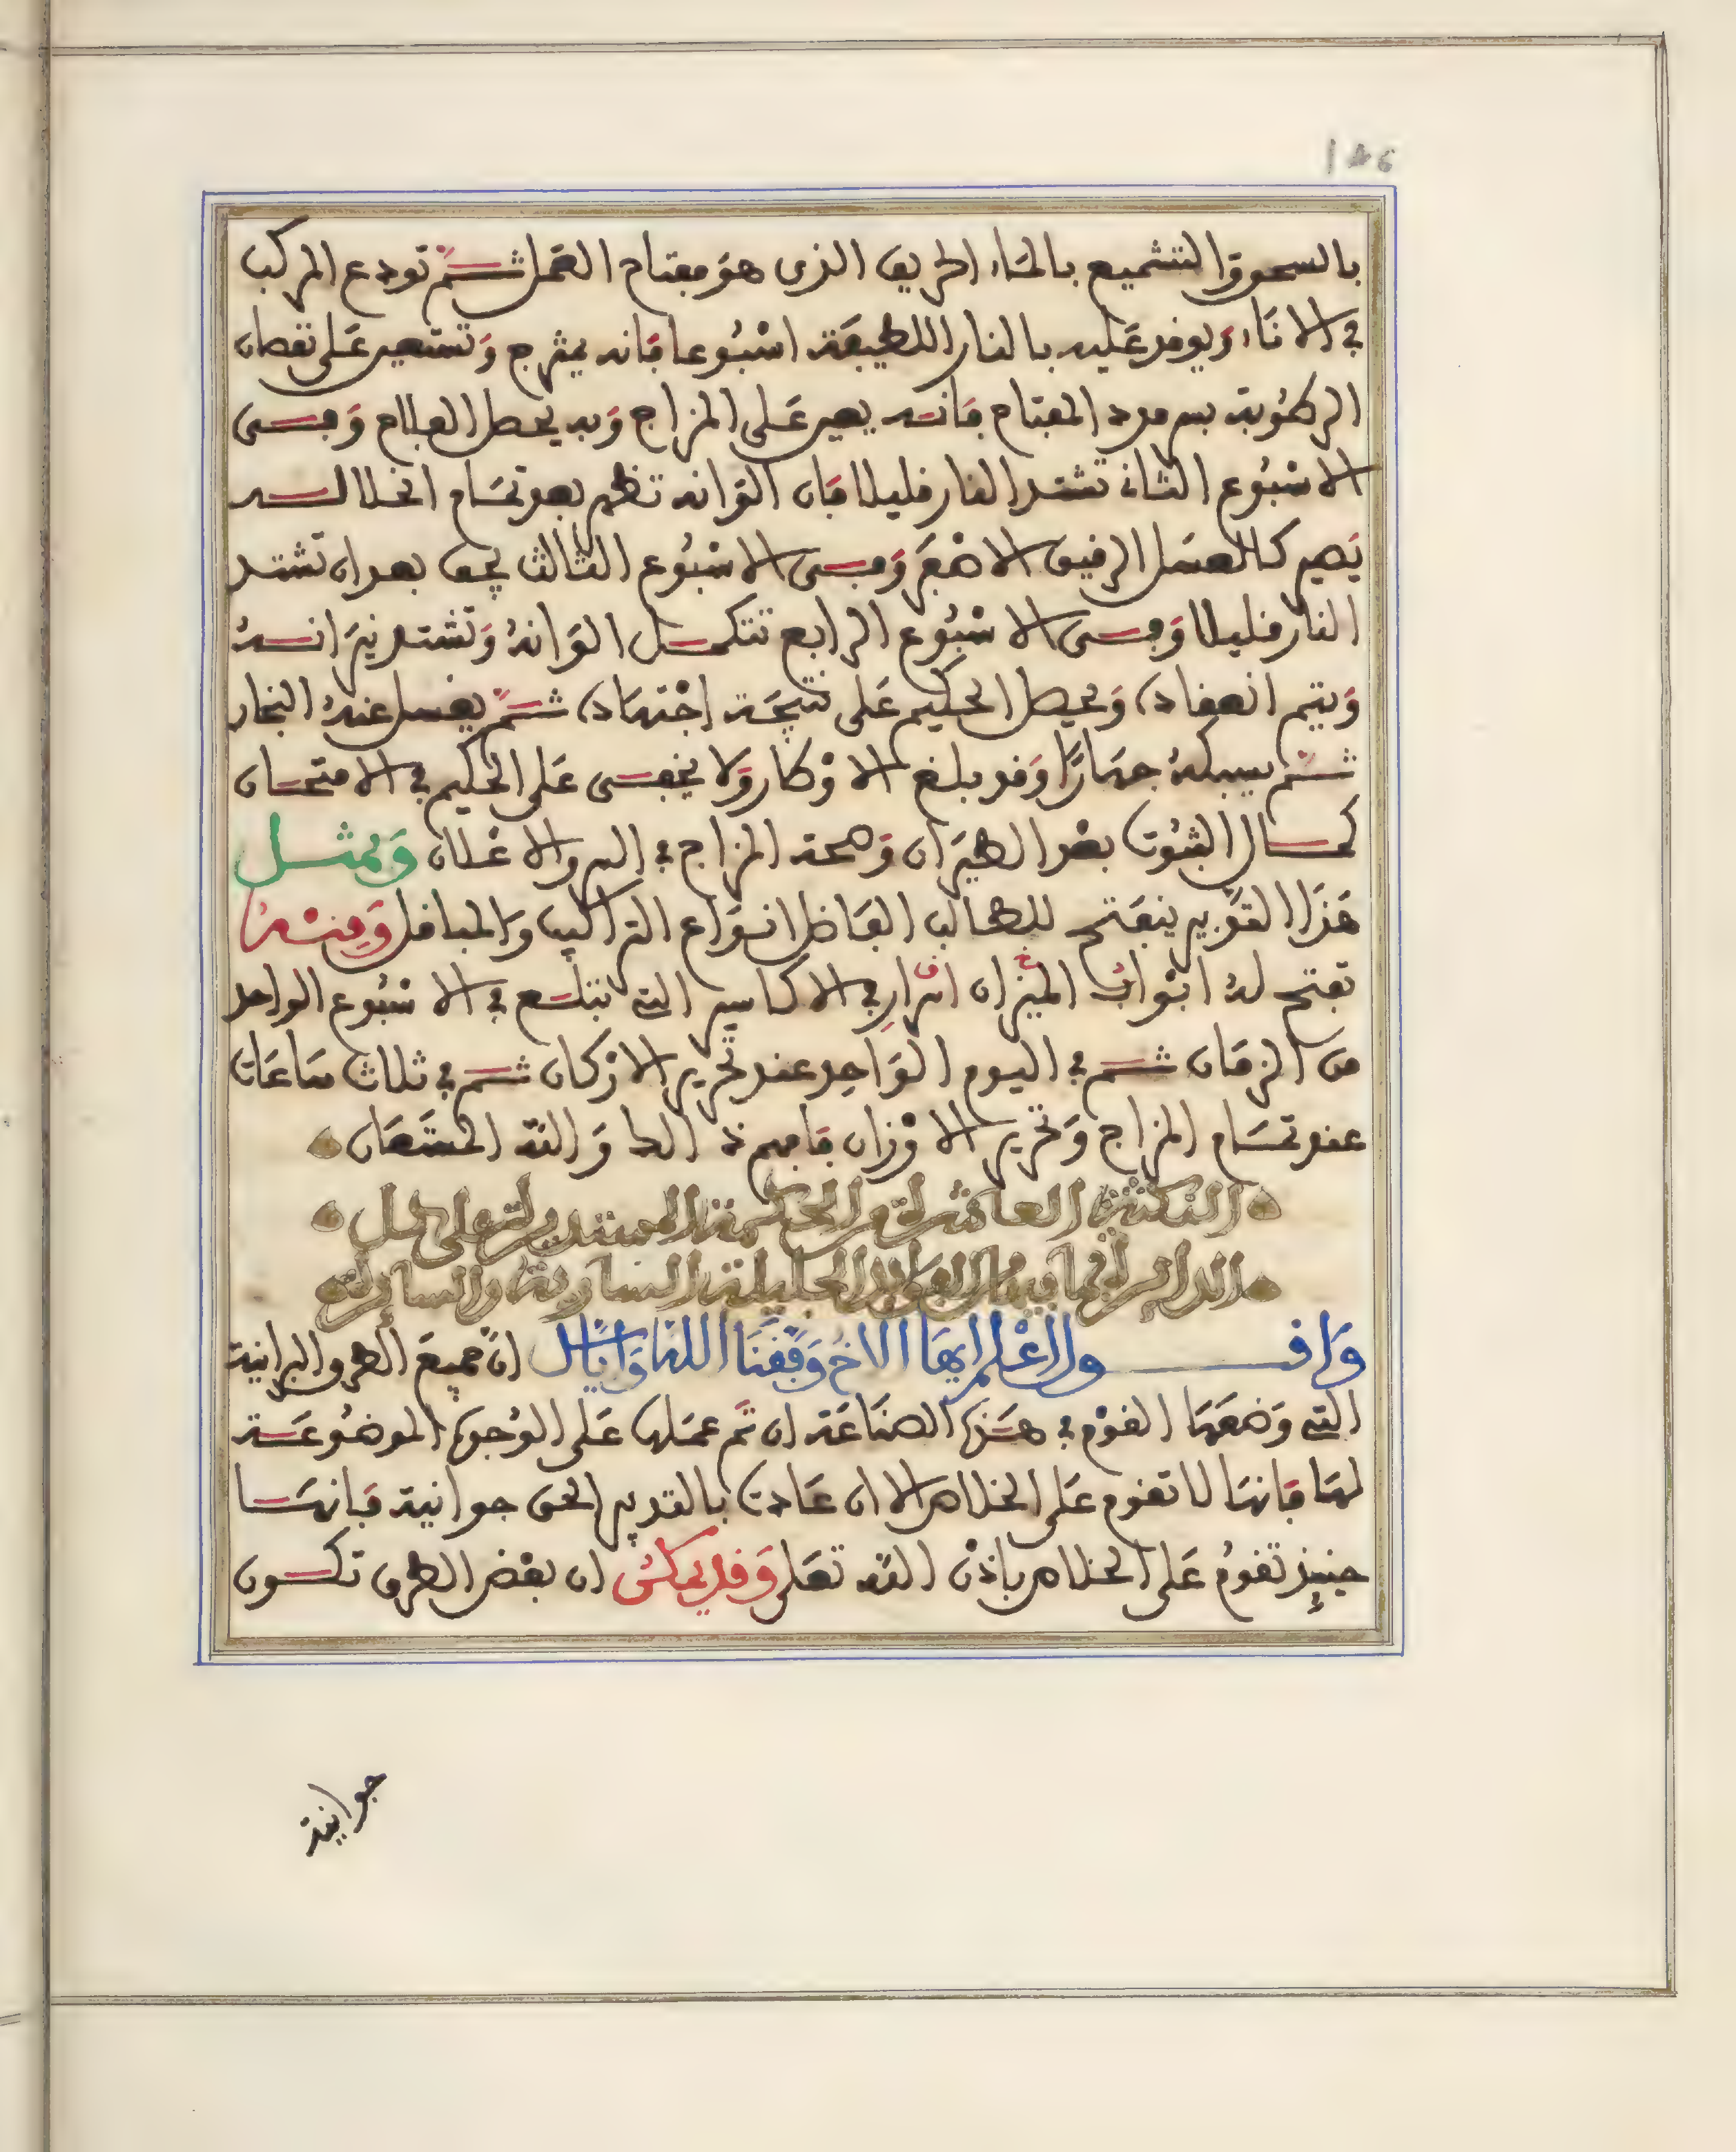 146
بالسحق والتشميع بالماء الحريف الذى هو مفتاح العمل ثم تودع المركب
في الاناء ويوقد عليه بالنار اللطيفة اسبوعا فانه يمتزج وتستعين على نقصان
الرطوبة بسرمدد المفتاح فانه يعين على المزاج وبه يحصل الفلاح وفى
الاسبوع الثانى تشتد النار قليلا فان الوانه تظهر بعد تمام انحلاله
يصير كالعسل الرقيق الاصفر وفى الاسبوع الثالث يجف بعد ان تشتد
النار قليلا وفى الاسبوع الرابع تتكمل الوانه وتشتد نيرانه
ويتم انعقاده ويحصل الحكيم على نتيجة اجتهاده ثم يغسل عنه البخار
ثم يسبكه جهارا وقد بلغ الاوطار ولا يخفى على الحكيم في الامتحان
كمال الثبوت بعد الطيران وصحة المزاج في السر والاعلان وبمثل
هذا التدبير ينفتح للطالب الفاضل انواع التراكيب والمباقل ومنه
تفتح له ابواب الميزان اسرار في الاكاسير التي تبتلع في الاسبوع الواحد
من الزمان ثم في اليوم الواحد عند تحرير الاركان ثم في ثلاث ساعات
عند تمام المزاج وتحرير الاوزان فافهم ذلك والله المستعان
النكتة العاشرة من الحكمة المستديرة على حل
الدايرة بما فيه الفوايد الجليلة السارية والسايرة
واقـول اعلم ايها الاخ وفقنا الله واياك ان جميع الطرق البرانية
التي وضعها القوم في هذه الصناعة ان تم عملها على الوجوه الموضوعة
لها فانها لا تقوم على الخلاص الا ان عادت بالتدبير الحق جوانية فانها
حينئذ تقوم على الخلاص باذن الله تعلى وقد يمكن ان بعض الطرق تكون
جوانية